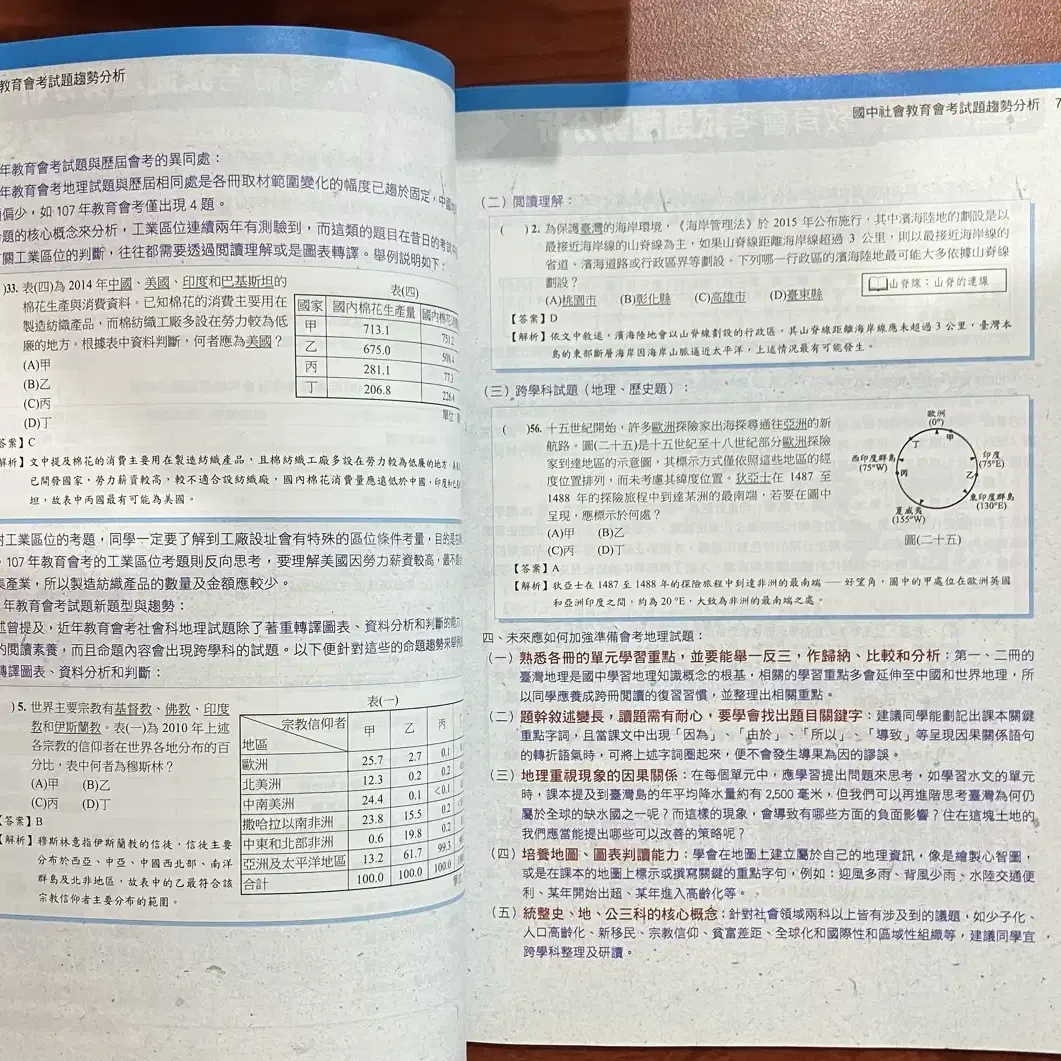 教育會考試題趨勢分析
年教育會考試題與歷屆會考的異同處：
年教育會考地理試題與歷屆相同處是各冊取材範圍變化的幅度已趨於固定，中
偏少，如 107 年教育會考僅出現 4 題。
題的核心概念來分析，工業區位連續兩年有測驗到，而這類的題目在昔日的考
關工業區位的判斷，往往都需要透過閱讀理解或是圖表轉譯。舉例說明如下：
)33. 表(四)為 2014 年中國、美國、印度和巴基斯坦的
棉花生產與消費資料。已知棉花的消費主要用在
製造紡織產品，而棉紡織工廠多設在勞力較為低
廉的地方。根據表中資料判斷，何者應為美國？
(A)甲
(B)乙
(C)丙
(D)丁
表(四)
國家 國內棉花生產量 國內棉花
甲 713.1 751.2
乙 675.0 508.4
丙 281.1 77.3
丁 206.8 226.4
單位：
答案】C
解析】文中提及棉花的消費主要用在製造紡織產品，且棉紡織工廠多設在勞力較為低廉的地方，
已開發國家，勞力薪資較高，較不適合設紡織廠，國內棉花消費量應遠低於中國、印度和巴
坦，故表中丙國最有可能為美國。
對工業區位的考題，同學一定要了解到工廠設址會有特殊的區位條件考量，目的是
，107 年教育會考的工業區位考題則反向思考，要理解美國因勞力薪資較高，最不
集產業，所以製造紡織產品的數量及金額應較少。
年教育會考試題新題型與趨勢：
述曾提及，近年教育會考社會科地理試題除了著重轉譯圖表、資料分析和判斷的能
的閱讀素養，而且命題內容會出現跨學科的試題。以下便針對這些的命題趨勢來舉例
轉譯圖表、資料分析和判斷：
)5. 世界主要宗教有基督教、佛教、印度
教和伊斯蘭教。表(一)為 2010 年上述
各宗教的信仰者在世界各地分布的百
分比，表中何者為穆斯林？
(A)甲 (B)乙
(C)丙 (D)丁
【答案】B
【解析】穆斯林意指伊斯蘭教的信徒，信徒主要
分布於西亞、中亞、中國西北部、南洋
群島及北非地區，故表中的乙最符合該
宗教信仰者主要分布的範圍。
表(一)
宗教信仰者 甲 乙 丙
地區
歐洲 25.7 2.7 0.1
北美洲 12.3 0.2 0.2
中南美洲 24.4 0.1 <0.1
撒哈拉以南非洲 23.8 15.5 0.2
中東和北部非洲 0.6 19.8 0.2
亞洲及太平洋地區 13.2 61.7 99.3
合計 100.0 100.0 100.0
國中社會教育會考試題趨勢分析 7
(二) 閱讀理解：
( )2. 為保護臺灣的海岸環境，《海岸管理法》於 2015 年公布施行，其中濱海陸地的劃設是以
最接近海岸線的山脊線為主，如果山脊線距離海岸線超過 3 公里，則以最接近海岸線的
省道、濱海道路或行政區界等劃設。下列哪一行政區的濱海陸地最可能大多依據山脊線
劃設？
(A)桃園市 (B)彰化縣 (C)高雄市 (D)臺東縣
山脊線：山脊的連線
【答案】D
【解析】依文中敘述，濱海陸地會以山脊線劃設的行政區，其山脊線距離海岸線應未超過 3 公里，臺灣本
島的東部斷層海岸因海岸山脈逼近太平洋，上述情況最有可能發生。
(三) 跨學科試題（地理、歷史題）：
( )56. 十五世紀開始，許多歐洲探險家出海探尋通往亞洲的新
航路。圖(二十五)是十五世紀至十八世紀部分歐洲探險
家到達地區的示意圖，其標示方式僅依照這些地區的經
度位置排列，而未考慮其緯度位置。狄亞士在 1487 至
1488 年的探險旅程中到達某洲的最南端，若要在圖中
呈現，應標示於何處？
(A)甲 (B)乙
(C)丙 (D)丁
歐洲
(0°)
丁 甲
西印度群島
(75°W)
印度
(75°E)
丙 乙
東印度群島
(130°E)
夏威夷
(155°W)
圖(二十五)
【答案】A
【解析】狄亞士在 1487 至 1488 年的探險旅程中到達非洲的最南端 —— 好望角，圖中的甲處位在歐洲英國
和亞洲印度之間，約為 20 °E，大致為非洲的最南端之處。
四、未來應如何加強準備會考地理試題：
(一) 熟悉各冊的單元學習重點，並要能舉一反三，作歸納、比較和分析：第一、二冊的
臺灣地理是國中學習地理知識概念的根基，相關的學習重點多會延伸至中國和世界地理，所
以同學應養成跨冊閱讀的復習習慣，並整理出相關重點。
(二) 題幹敘述變長，讀題需有耐心，要學會找出題目關鍵字：建議同學能劃記出課本關鍵
重點字詞，且當課文中出現「因為」、「由於」、「所以」、「導致」等呈現因果關係語句
的轉折語氣時，可將上述字詞圈起來，便不會發生導果為因的謬誤。
(三) 地理重視現象的因果關係：在每個單元中，應學習提出問題來思考，如學習水文的單元
時，課本提及到臺灣島的年平均降水量約有 2,500 毫米，但我們可以再進階思考臺灣為何仍
屬於全球的缺水國之一呢？而這樣的現象，會導致有哪些方面的負面影響？住在這塊土地的
我們應當能提出哪些可以改善的策略呢？
(四) 培養地圖、圖表判讀能力：學會在地圖上建立屬於自己的地理資訊，像是繪製心智圖，
或是在課本的地圖上標示或撰寫關鍵的重點字句，例如：迎風多雨、背風少雨、水陸交通便
利、某年開始出超、某年進入高齡化等。
(五) 統整史、地、公三科的核心概念：針對社會領域兩科以上皆有涉及到的議題，如少子化、
人口高齡化、新移民、宗教信仰、貧富差距、全球化和國際性和區域性組織等，建議同學宜
跨學科整理及研讀。